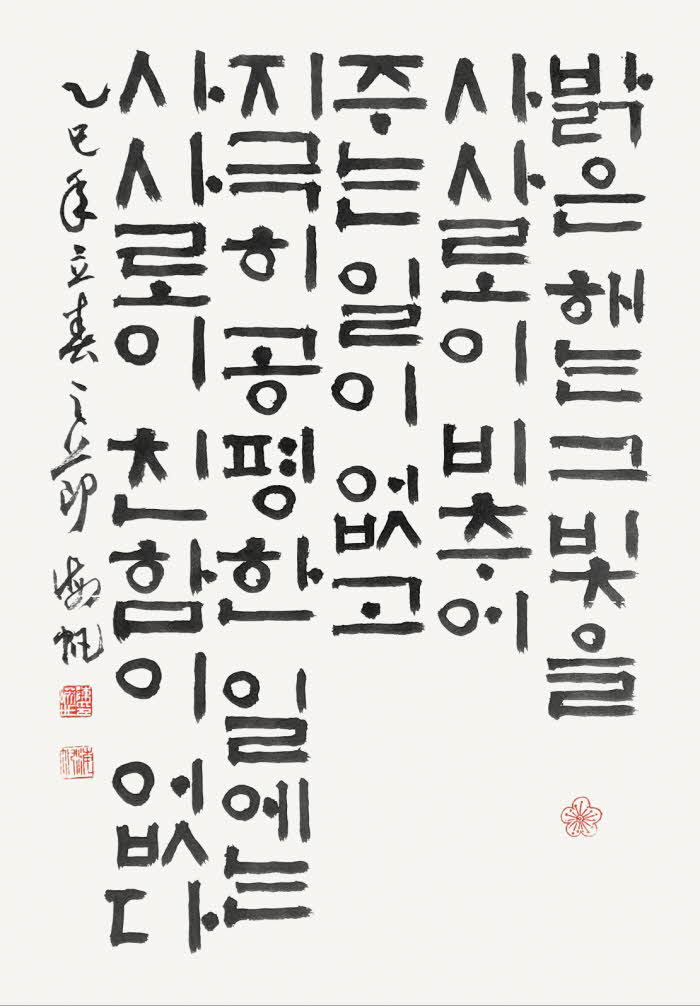 밝은 해는 그 빛을
사사로이 비추어
주는 일이 없고
지극히 공평한 일에는
사사로이 친함이 없다
乙巳年立春之節 海帆